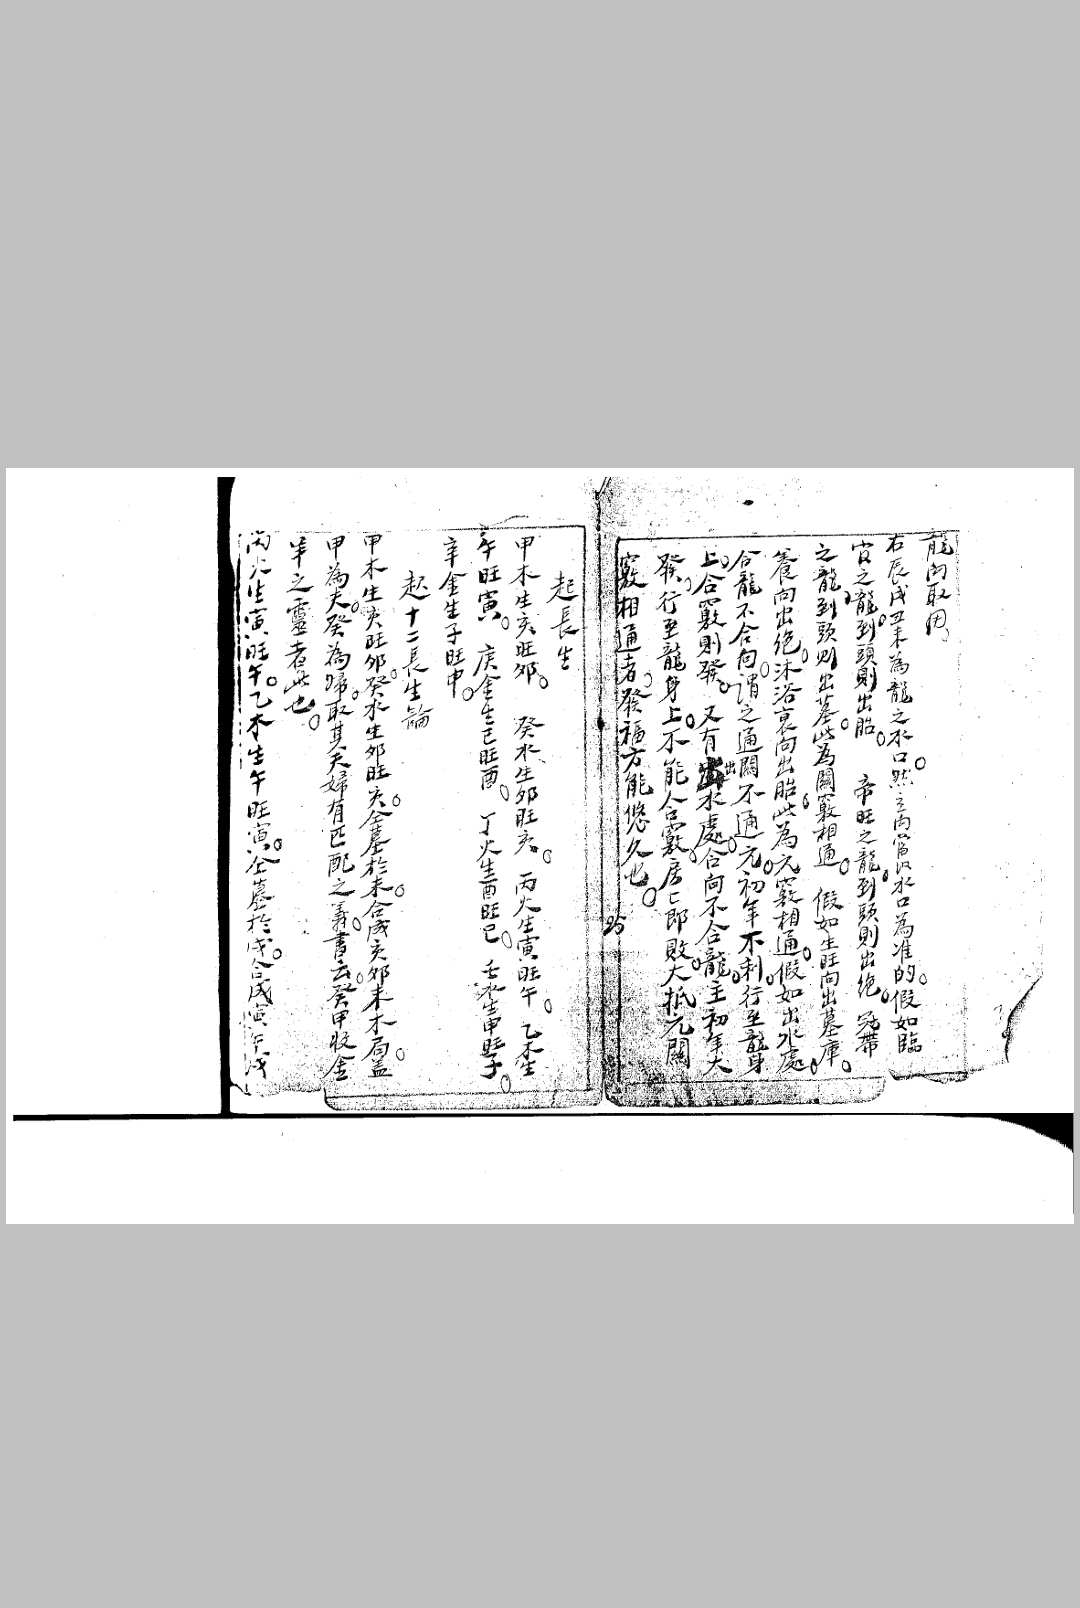 龍向取用
右辰戌丑未為龍之水口。然立向當以水口為准的。假如臨
官之龍。到頭則出胎。帝旺之龍。到頭則出絕。冠帶
之龍到頭則出墓。此為關竅相通。假如生旺向出墓庫。
養向出絕。沐浴衰向出胎。此為元竅相通。假如出水處。
合龍不合向。謂之通關不通元。初年不利。行至龍身
上。合竅則發。又有出水處。合向不合龍。主初年大
發。行至龍身上。不能合竅。房房即敗。大抵元關
竅相通者。發福方能悠久也。
25
起長生
甲木生亥旺卯。癸水生卯旺亥。丙火生寅旺午。乙木生
午旺寅。庚金生巳旺酉。丁火生酉旺巳。壬水生申旺子。
辛金生子旺申。
起十二長生論
甲木生亥旺卯。癸水生卯旺亥。仝墓於未。合成亥卯未木局。蓋
甲為夫。癸為婦。取其夫婦有匹配之義。書云。癸甲收金
羊之靈者此也。
丙火生寅旺午。乙木生午旺寅。仝墓於戌。合成寅午戌